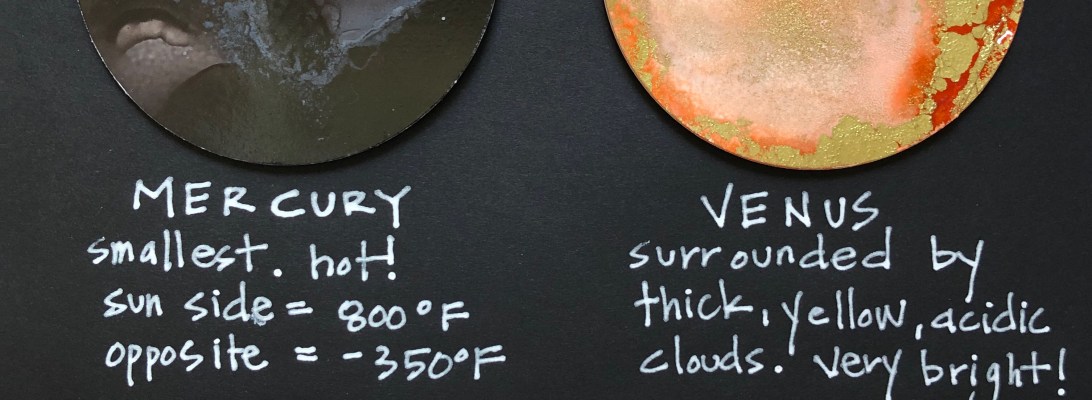 MERCURY
smallest. hot!
sun side = 800°F
opposite = -350°F
VENUS
surrounded by
thick, yellow, acidic
clouds. very bright!